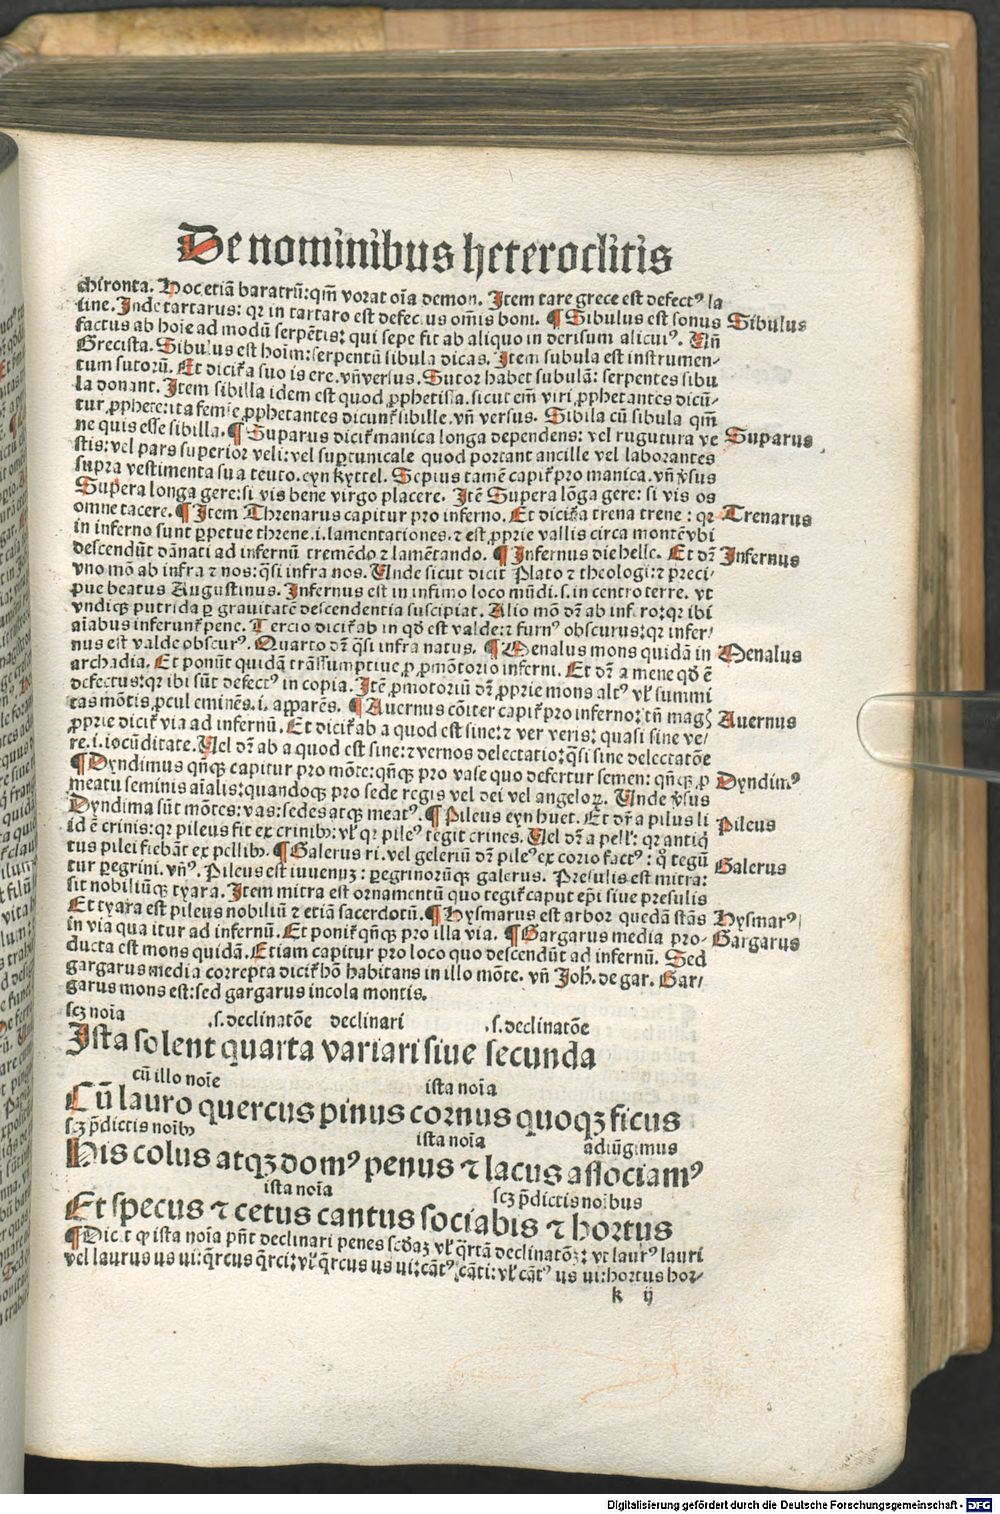 De nominibus heteroclitis
chironta. Hoc etiā baratrū: qm̄ vorat oīa demon. Item tare grece est defectꝰ la
tine. Inde tartarus: qꝛ in tartaro est defectus om̄is boni. ¶ Sibulus est sonus
Sibulus
factus ab hoīe ad modū serpētis: qui sepe fit ab aliquo in derisum alicuiꝰ. Vn̄
Grecista. Sibulus est hoīm: serpentū sibula dicas. Item subula est instrumen-
tum sutorū. Et dicit̄ a suo is ere. vn̄ versus. Sutor habet subulā: serpentes sibu
la donant. Item sibilla idem est quod ꝓphetissa. sicut em̄ viri ꝓphetantes dicū-
tur ꝓphete: ita femīe ꝓphetantes dicunt̄ sibille. vn̄ versus. Sibila cū sibula qm̄
ne quis esse sibilla. ¶ Suparus dicit̄ manica longa dependens: vel rugutura ve
Suparus
stis: vel pars superior veli: vel suꝑtunicale quod portant ancille vel laborantes
supra vestimenta sua teuto. eyn kyttel. Sepius tamē capit̄ pro manica. vn̄ v̄sus
Supera longa gere: si vis bene virgo placere. Itē Supera lōga gere: si vis os
omne tacere. ¶ Item Threnarus capitur pro inferno. Et dicit̄ a trena trene: qꝛ
Trenarus
in inferno sunt ꝑpetue threne. i. lamentationes. ⁊ est ꝓprie vallis circa montē vbi
descendūt dānati ad infernū tremēdo ⁊ lamētando. ¶ Infernus die helle. Et dr̄
Infernus
vno mō ab infra ⁊ nos: q̄si infra nos. Unde sicut dicit Plato ⁊ theologi: ⁊ preci-
pue beatus Augustinus. Infernus est in infimo loco mūdi. s. in centro terre. vt
vndiqꝫ putrida ꝑ grauitatē descendentia suscipiat. Alio mō dr̄ ab infero: qꝛ ibi
aīabus inferunt̄ pene. Tercio dicit̄ ab in qd̄ est valde: ⁊ furnꝰ obscurus: qꝛ infer-
nus est valde obscurꝰ. Quarto dr̄ q̄si infra natus. ¶ Menalus mons quidā in
Menalus
archadia. Et ponūt quidā trāssumptiue ꝓ ꝓmōtorio inferni. Et dr̄ a mene qd̄ ē
defectus: qꝛ ibi sūt defectꝰ in copia. Itē ꝓmotoriū dr̄ ꝓprie mons altꝰ vl̄ summi
tas mōtis ꝓcul eminēs. i. apparēs. ¶ Auernus cōiter capit̄ pro inferno: tn̄ magꝭ
Auernus
ꝓprie dicit̄ via ad infernū. Et dicit̄ ab a quod est sine: ⁊ ver veris: quasi sine ve-
re. i. iocūditate. Vel dr̄ ab a quod est sine: ⁊ vernos delectatio: q̄si sine delectatōe
¶ Dyndimus qn̄qꝫ capitur pro mōte: qn̄qꝫ pro vase quo defertur semen: qn̄qꝫ ꝓ
Dyndimꝰ
meatu seminis aīalis: quandoqꝫ pro sede regis vel dei vel angeloꝝ. Unde v̄sus
Dyndima sūt mōtes: vas: sedes atqꝫ meatꝰ. ¶ Pileus eyn huet. Et dr̄ a pilus li
Pileus
id ē crinis: qꝛ pileus fit ex crinibꝫ: vl̄ qꝛ pileꝰ tegit crines. Vel dr̄ a pelle: qꝛ antiq̇
tus pilei fiebāt ex pellibꝫ. ¶ Galerus ri. vel geleriū dr̄ pileꝰ ex corio factꝰ: q̇ tegū
Galerus
tur ꝑegrini. vn̄ꝰ. Pileus est iuuenuꝫ: ꝑegrinorūqꝫ galerus. Presulis est mitra:
sit nobiliūqꝫ tyara. Item mitra est ornamentū quo tegit̄ caput ep̄i siue presulis
Et tyara est pileus nobiliū ⁊ etiā sacerdotū. ¶ Hysmarus est arbor quedā stās
Hysmarꝰ
in via qua itur ad infernū. Et ponit̄ qn̄qꝫ pro illa via. ¶ Gargarus media pro-
Gargarus
ducta est mons quidā. Etiam capitur pro loco quo descendūt ad infernū. Sed
gargarus media correpta dicit̄ hō habitans in illo mōte. vn̄ Joh̄. de gar. Gar-
garus mons est: sed gargarus incola montis.
scꝫ noīa .s. declinatōe declinari .s. declinatōe
Ista solent quarta variari siue secunda
cū illo noīe ista noīa
Cū lauro quercus pinus cornus quoqꝫ ficus
scꝫ p̄dictis noībꝫ ista noīa adiūgimus
His colus atqꝫ domꝰ penus ⁊ lacus associamꝰ
ista noīa scꝫ p̄dictis noībus
Et specus ⁊ cetus cantus sociabis ⁊ hortus
¶ Dicit ꝙ ista noīa pn̄t declinari penes scd̄aꝫ vl̄ q̄rtā declinatōꝫ: vt laurꝰ lauri
vel laurus us ui: q̄rcus q̄rci: vl̄ q̄rcus us ui: cātꝰ cāti: vl̄ cātꝰ us ui: hortus hor-
k ij
Digitalisierung gefördert durch die Deutsche Forschungsgemeinschaft - DFG